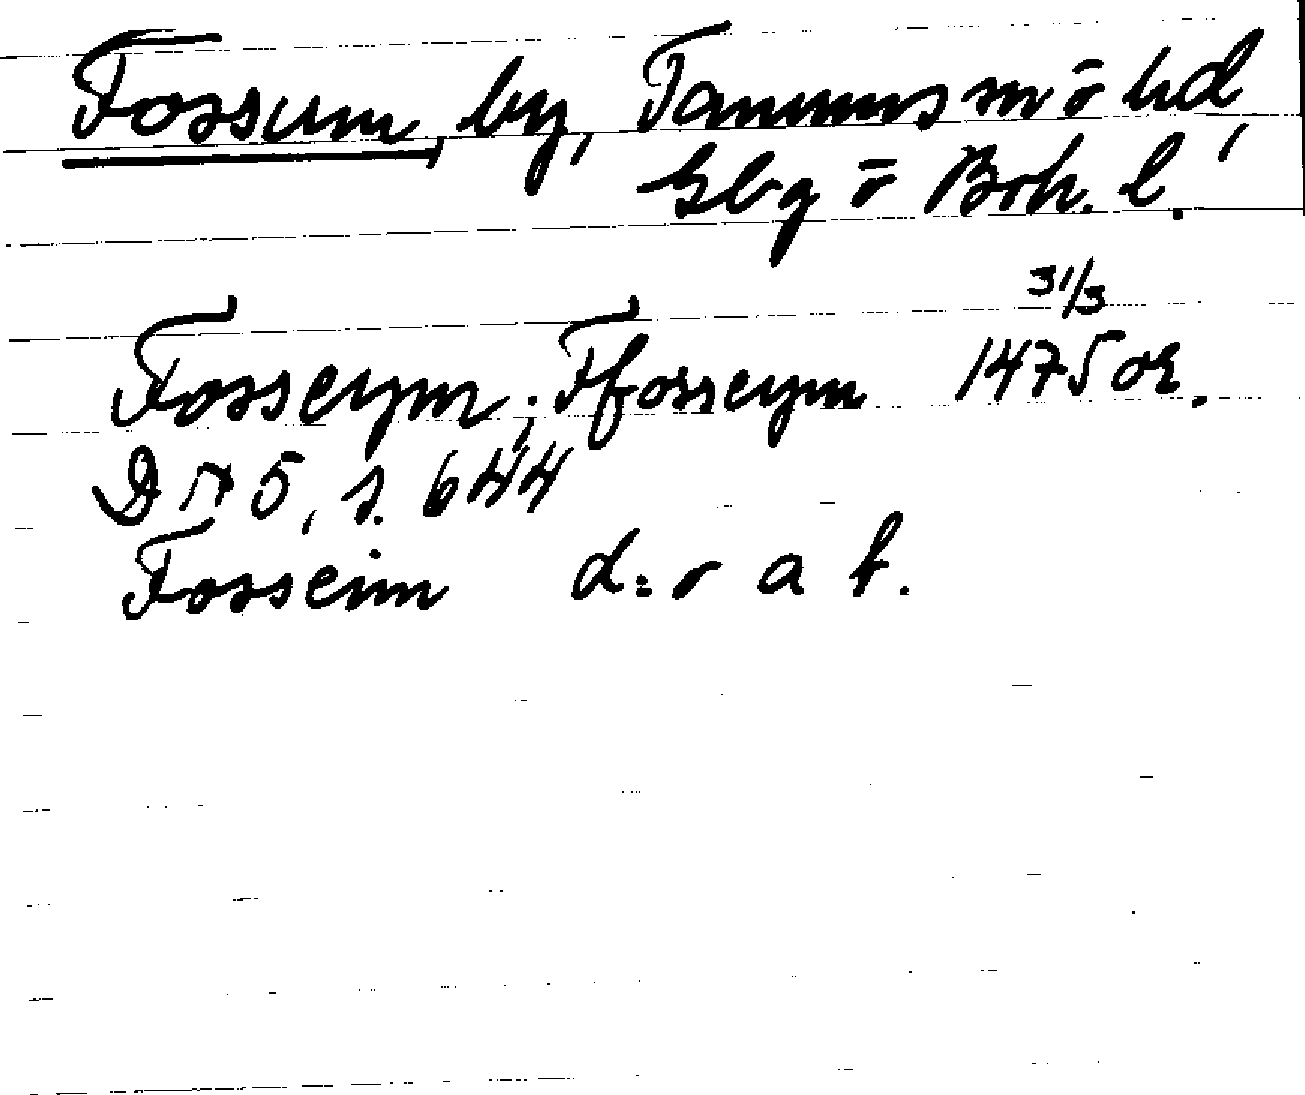 Fossum, by, Tanums sn o hd,
Gbg o Boh. l.
Fosseym; Ffosseym 31/3 1475 or.
DN 5, s. 644
Fosseim d:o a f.